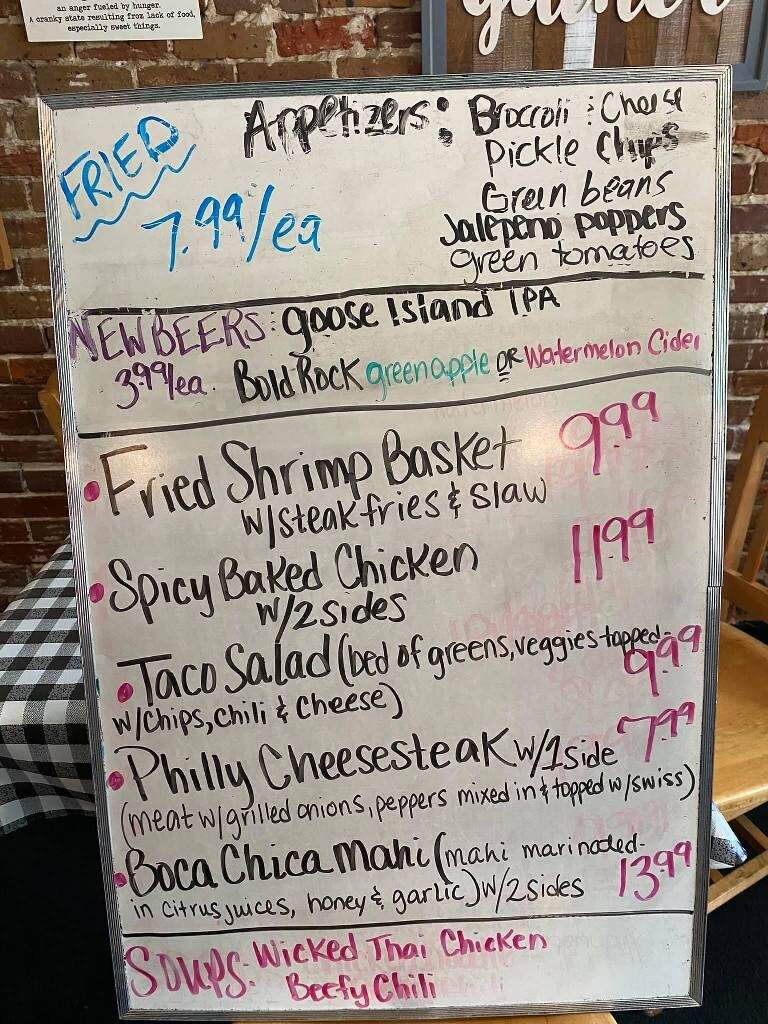 an anger fueled by hunger.
A cranky state resulting from lack of food,
especially sweet things.
gather
FRIED
7.99/ea
Appetizers: Broccoli & Cheese
Pickle Chips
Green beans
Jalepeno poppers
green tomatoes
NEW BEERS: goose Island IPA
3.99/ea. Bold Rock green apple OR Watermelon Cider
• Fried Shrimp Basket 9.99
w/steak fries & slaw
• Spicy Baked Chicken 11.99
w/2 sides
• Taco Salad (bed of greens, veggies topped- 9.99
w/chips, chili & cheese)
• Philly Cheesesteak w/1 side 7.99
(meat w/grilled onions, peppers mixed in & topped w/swiss)
• Boca Chica Mahi (mahi marinated- 13.99
in citrus juices, honey & garlic) w/2 sides
SOUPS: Wicked Thai Chicken
Beefy Chili